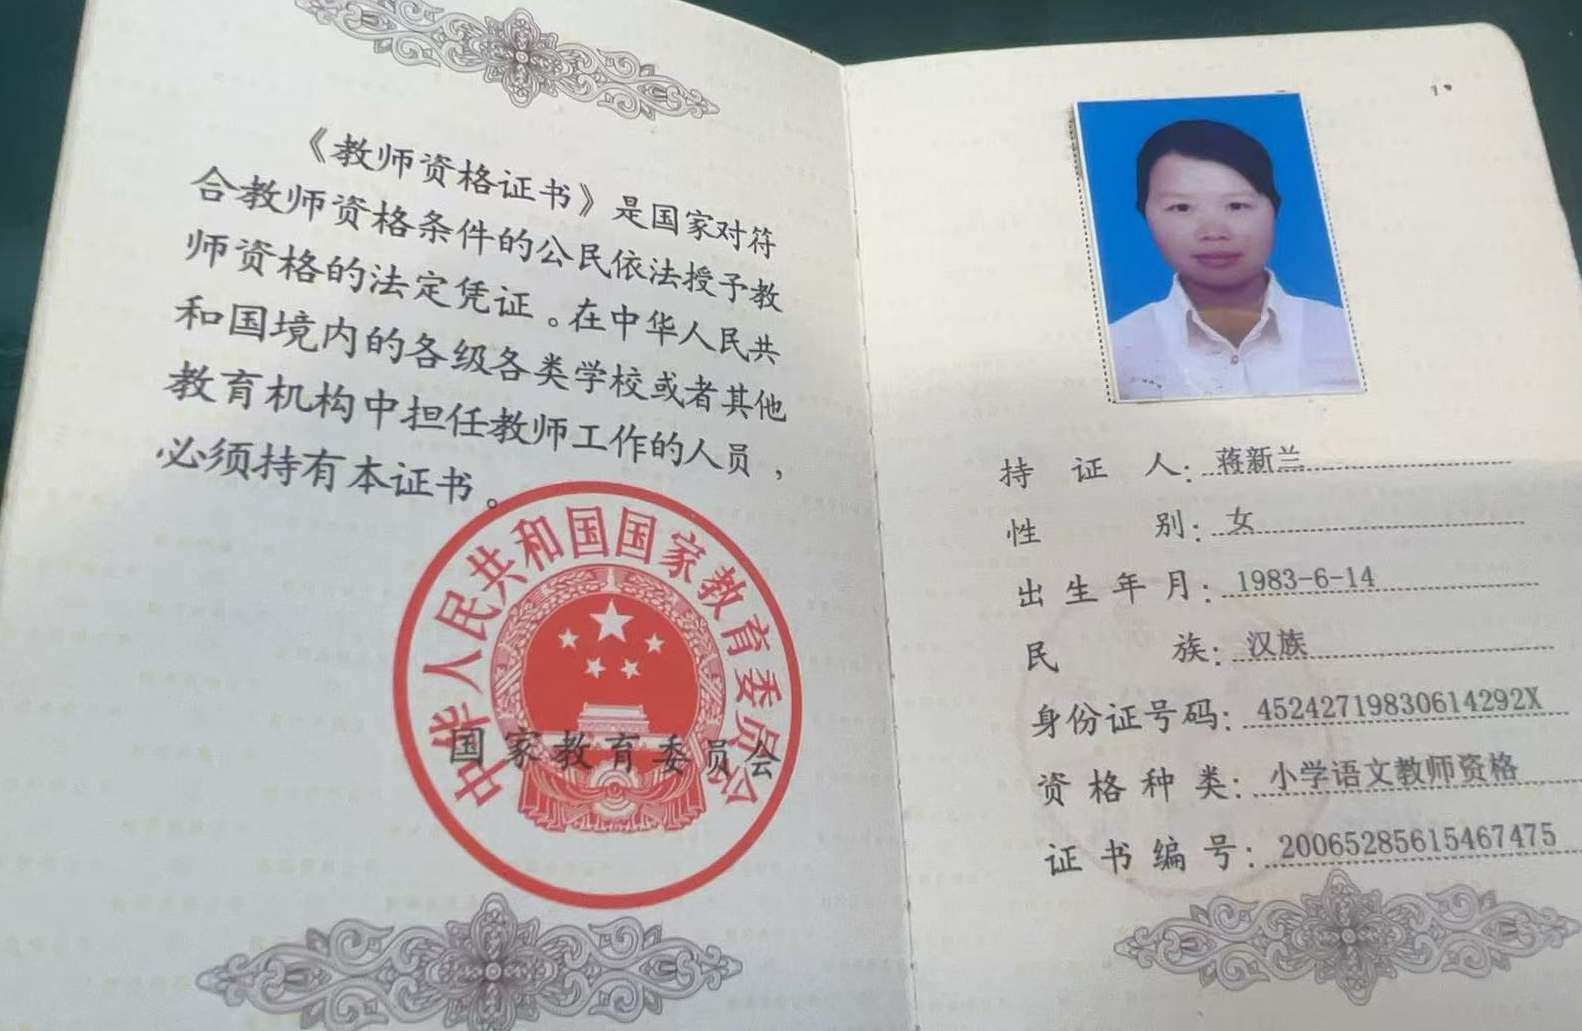 《教师资格证书》是国家对符
合教师资格条件的公民依法授予教
师资格的法定凭证。在中华人民共
和国境内的各级各类学校或者其他
教育机构中担任教师工作的人员，
必须持有本证书。
中华人民共和国国家教育委员会
国家教育委员会
持证人：蒋新兰
性别：女
出生年月：1983-6-14
民族：汉族
身份证号码：45242719830614292X
资格种类：小学语文教师资格
证书编号：20065285615467475